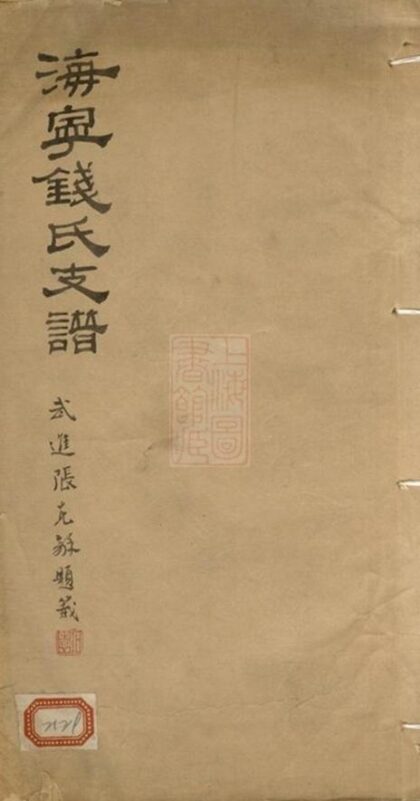 海寧錢氏支譜
武進張克題籤
上海圖
書館藏